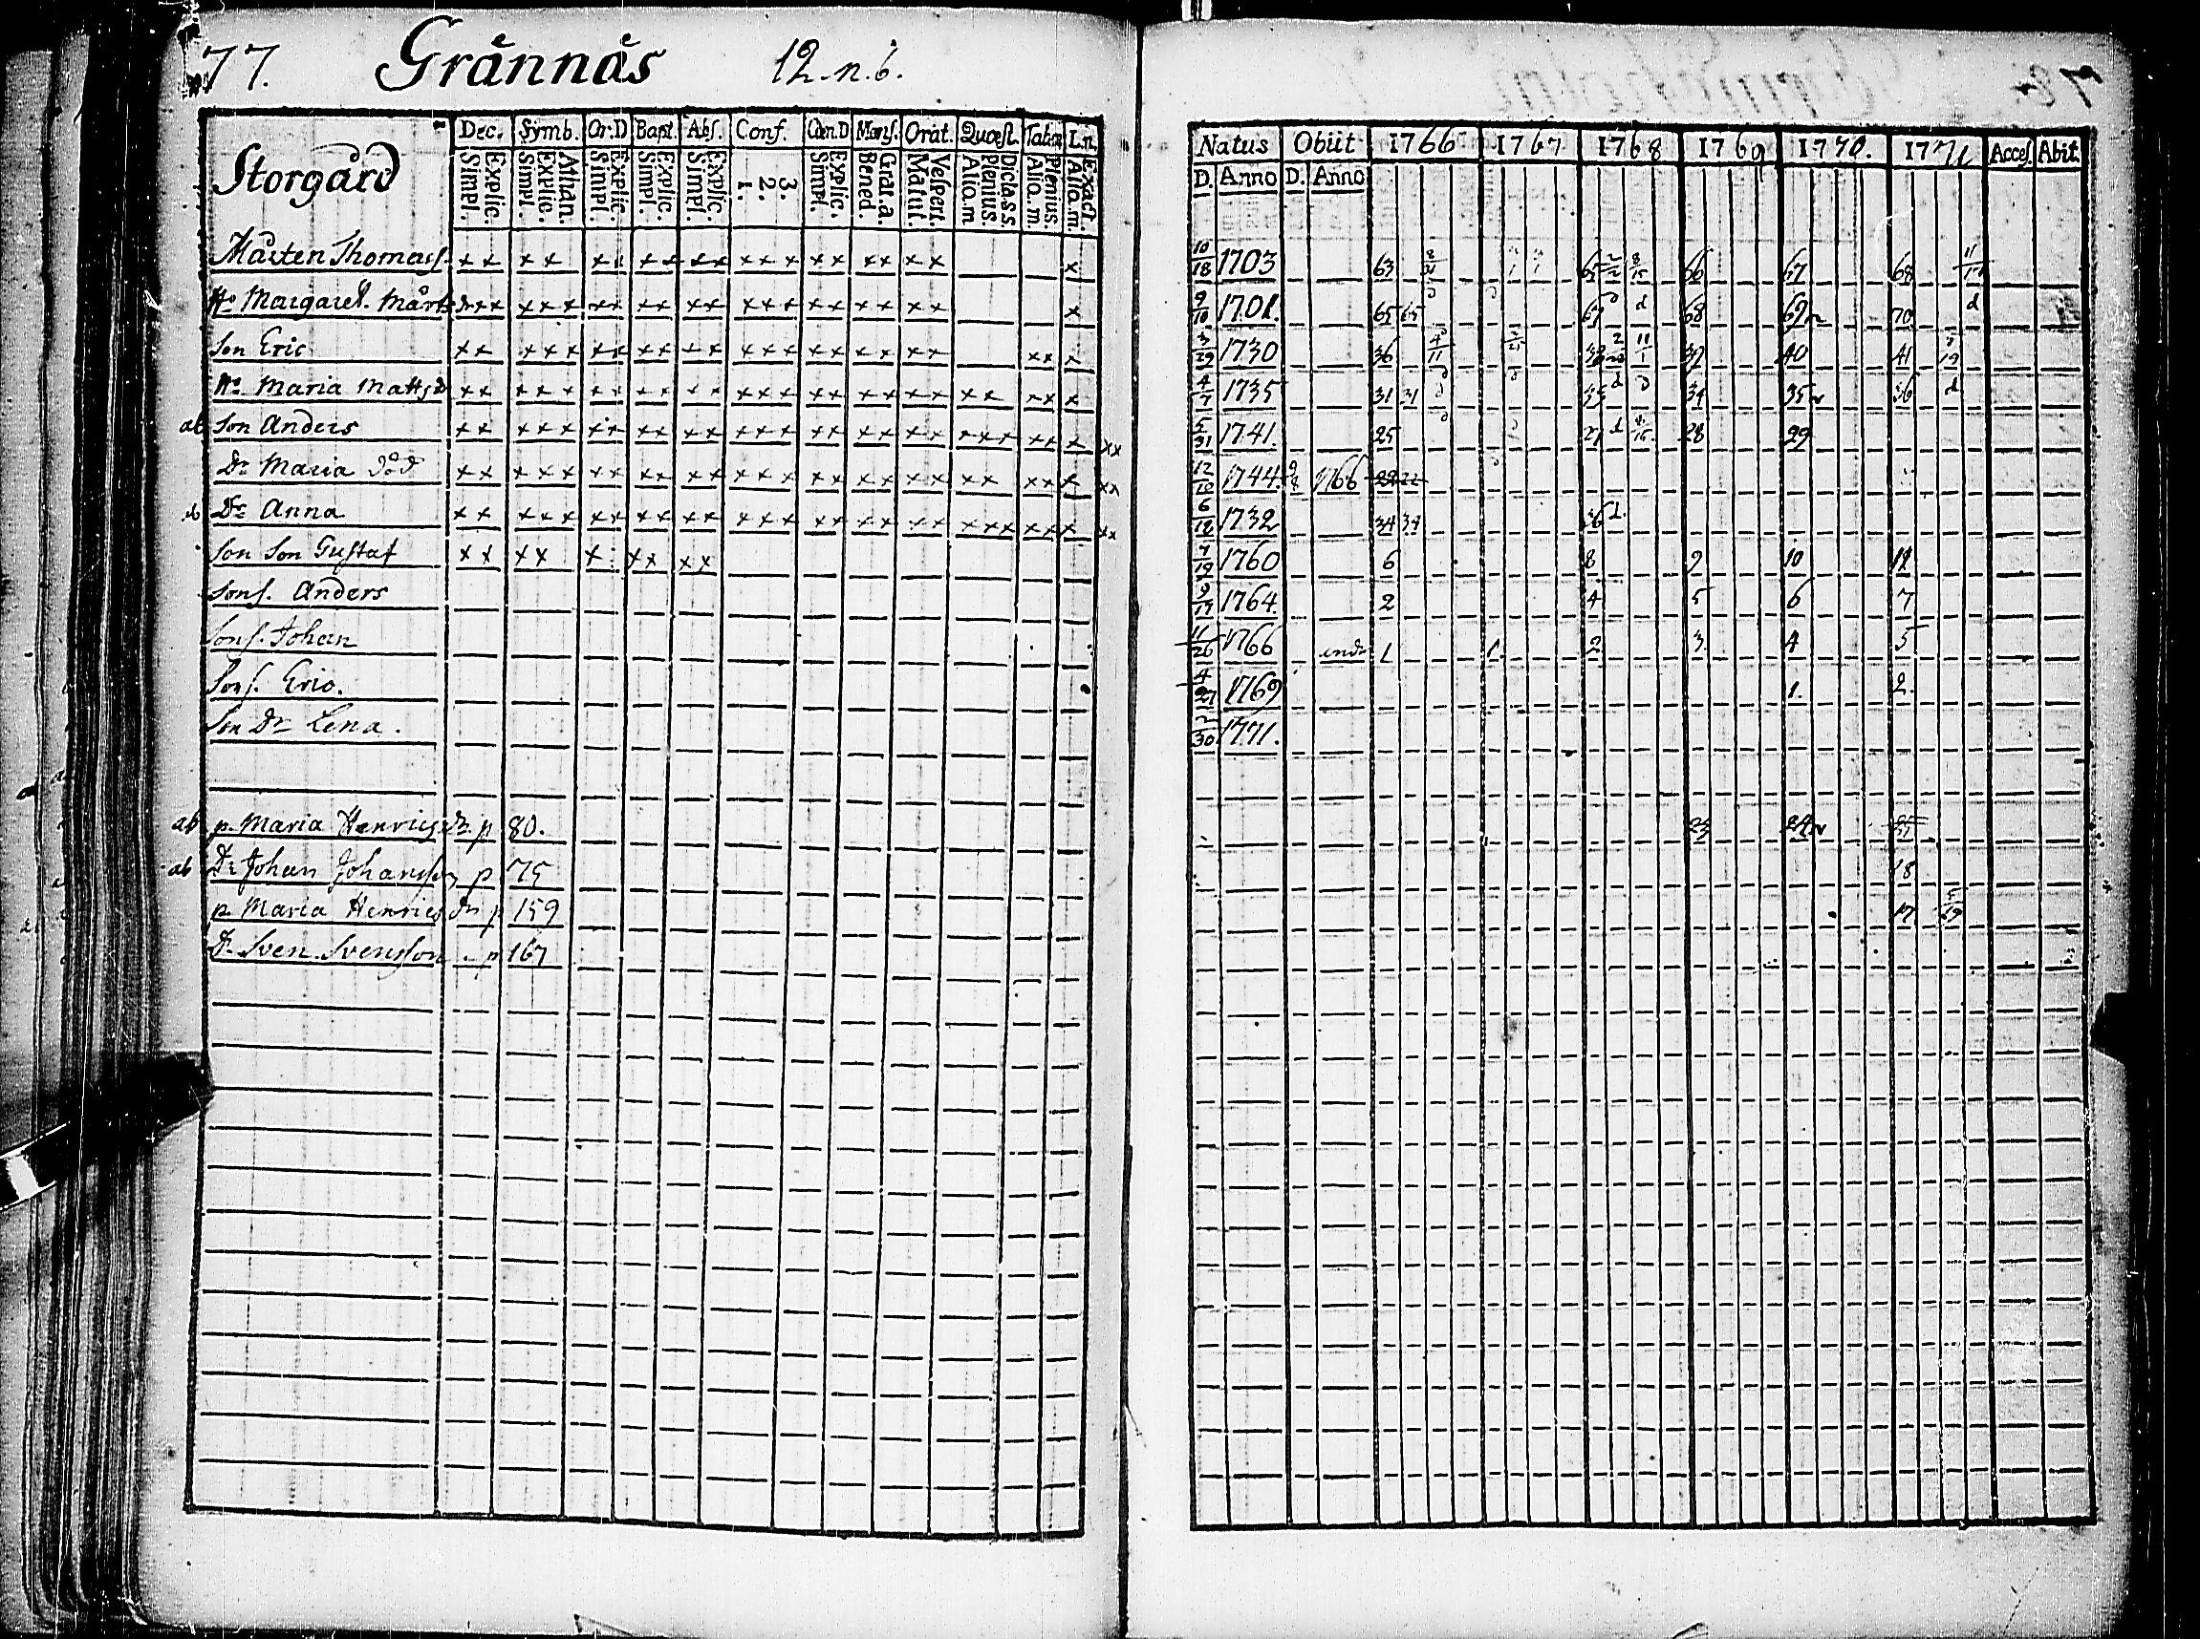 77. Grännäs 12.n.6.
Storgård
Dec. Symb. Or:D Bapt. Abs. Conf. Cœn.D Mens. Orat. Quæst. Tabæ L.n.
Explic. Simpl. Athan. Explic. Simpl. Explic. Simpl. Explic. Simpl. Explic. Simpl. 3. 2. 1. Explic. Simpl. Grat.a. Bened. Vespert. Matut. Dicta.s.s. Plenius. Alio.m Plenius. Alio.m. Exact. Alio.m.
Mårten Thomass. x x x x x x x x x x x x x x x x x x x x
Ho Margaret. Mårts dr x x x x x x x x x x x x x x x x x x x x x
Son Eric x x x x x x x x x x x x x x x x x x x x x x x
Ho Maria Matts d x x x x x x x x x x x x x x x x x x x x x x x x
ab Son Anders x x x x x x x x x x x x x x x x x x x x x x x x x x x x
Dr Maria död x x x x x x x x x x x x x x x x x x x x x x x x x x x
Dr Anna x x x x x x x x x x x x x x x x x x x x x x x x x x x
Son Son Gustaf x x x x x x x x x
Sons. Anders
Sons. Johan
Sons. Eric.
Son Dr Lena.
ab p. Maria Henricsdr. p 80.
ab Dr Johan Johansson p 75
p Maria Henricsdr p 159
Dr Sven Svensson p 167
Natus Obiit 1766 1767 1768 1769 1770. 1771 Acces. Abit.
D. Anno D. Anno
10/18 1703 63 65 66 67 68
9/10 1701. 65 65 67 68 69 70
3/29 1730 36 4/11 38 39 40 41
4/7 1735 31 31 33 d 34 35 36 d
5/31 1741. 25 27 d 28 29
12/10 1744. 1766 22 22
6/18 1732 34 34 36 d.
7/19 1760 6 8 9 10 11
9/17 1764. 2 4 5 6 7
11/26 1766 1 1. 2 3. 4 5
4/27 1769 1. 2.
1771.
23 24
18
17